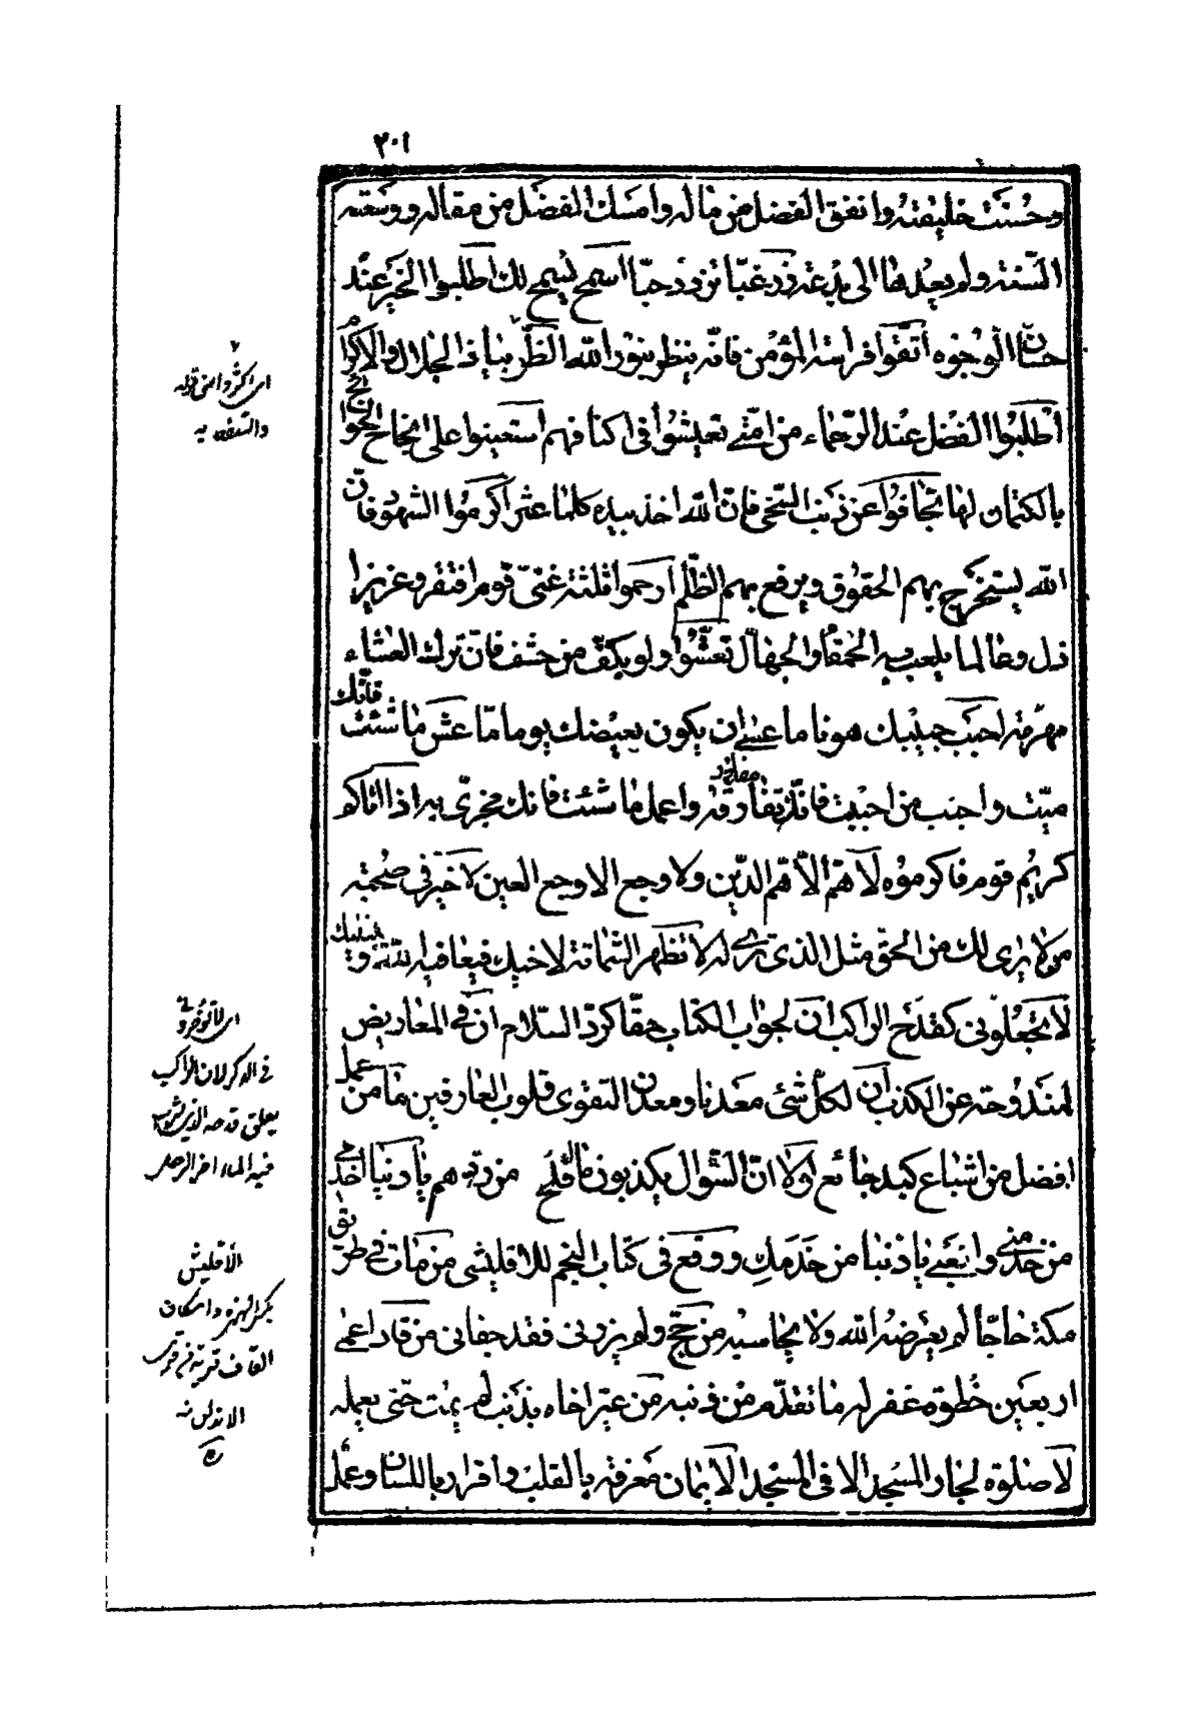 ٢٠١
وحسنت خليقته وانفق الفضل من ماله وامسك الفضل من مقاله ووسعته
السّنة ولم يعدها الى بدعة زرغبّا تزدد حبّا اسمح يسمح لك اطلبوا الخير عند
حسان الوجوه اتّقوا فراسة المؤمن فانّه ينظر بنور الله الظّوا بياذا الجلال والاكرام
اطلبوا الفضل عند الرّحماء من امّتى تعيشوا فى اكنافهم استعينوا على انجاح الحوائج
بالكتمان لها تجافوا عن ذنب السّخى فانّ الله اخذ بيده كلما عثر اكرموا الشهود فانّ
الله يستخرج بهم الحقوق ويرفع بهم الظّلم ارحموا ثلثة غنىّ قوم افتقر وعزيزا
ذل وعالما يلعب به الحمقاء والجهّال تعشّوا ولو بكفّ من حشف فانّ ترك العشاء
مهرمة احبب حبيبك هونا ما عسى ان يكون بغيضك يوما مّا عش ما شئت فانّك
ميّت واحبب من احببت فانّك مفارقه واعمل ما شئت فانك مجزىّ به اذا اتاكم
كريم قوم فاكرموه لا همّ الّا همّ الدّين ولا وجع الا وجع العين لا خير فى صحبة
من لا يرى لك من الحق مثل الذى ترى له لا تظهر الشماتة لاخيك فيعافيه الله ويبتليك
لا تجعلونى كقدح الراكب ان لجواب الكتاب حقّا كردّ السّلام ان فى المعاريض
لمندوحة عن الكذب ان لكلّ شىء معدنا ومعدن التقوى قلوب العارفين ما من عمل
افضل من اشباع كبد جائع لولا انّ السّؤال يكذبون ما افلح من ردّهم يا دنيا اخدمى
من خدمنى واتعبى يا دنيا من خدمك ووقع فى كتاب النجم للاقليشى من مات فى طريق
مكة حاجّا لم يعرضه الله ولا يحاسبه من حجّ ولم يزرنى فقد جفانى من قاد اعمى
اربعين خطوة غفر له ما تقدّم من ذنبه من عيّر اخاه بذنب لم يمت حتى يعمله
لا صلوة لجار المسجد الا فى المسجد الايمان معرفة بالقلب واقرار باللسان وعمل
اى اكثروا من قوله
والتلفظ به
فى الذكر لان الراكب
يعلق قدحه الذى يشرب
فيه الماء اخر الرحل
الأقليش
بكسر الهمزه واسكان
القاف قرية من قرى
الاندلس